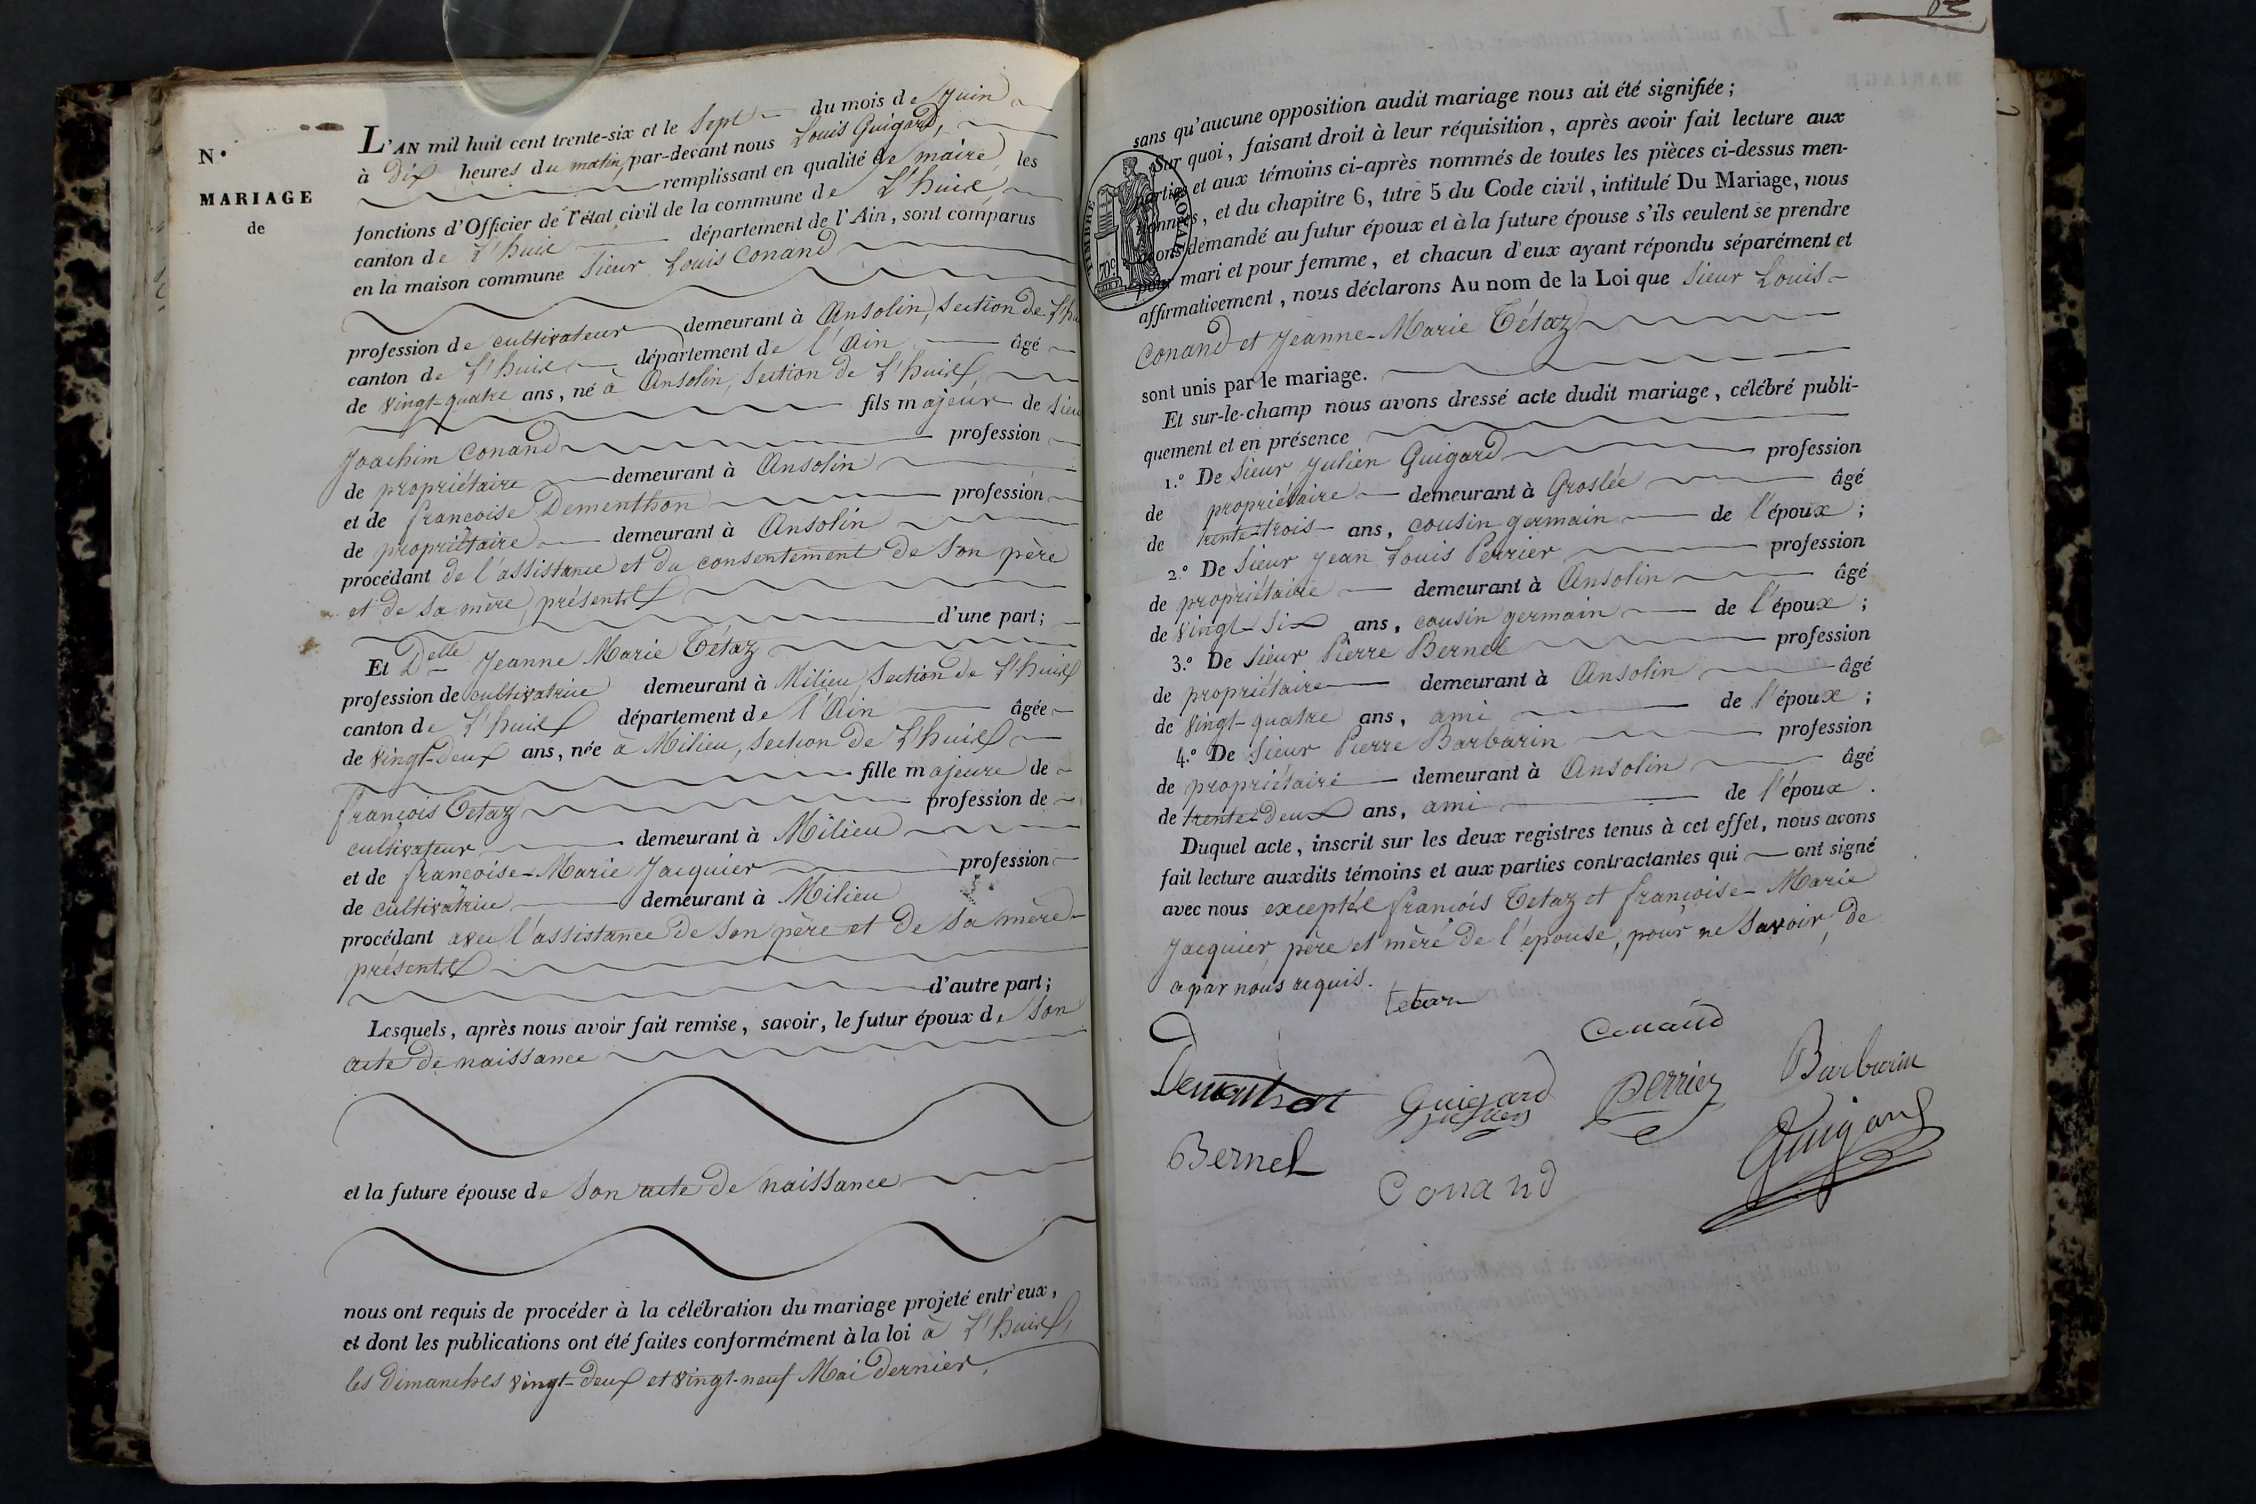 N.°
MARIAGE
de
L'AN mil huit cent trente-six et le sept du mois de Juin
à dix heures du matin, par-devant nous Louis Guigard,
remplissant en qualité de maire, les
fonctions d'Officier de l'état civil de la commune de L'huis,
canton de L'huis département de l'Ain, sont comparus
en la maison commune Sieur Louis Conand
profession de cultivateur demeurant à Ansolin, Section de L'hu
canton de L'huis département de l'Ain âgé
de vingt-quatre ans, né à Ansolin, Section de L'huis,
fils majeur de Sieu
Joachim Conand profession
de propriétaire demeurant à Ansolin
et de françoise Dementhon profession
de propriétaire demeurant à Ansolin
procédant de l'assistance et du consentement de son père
et de sa mère, présents
d'une part;
Et Delle Jeanne Marie Tétaz
profession de cultivatrice demeurant à Milieu, Section de L'huis
canton de L'huis département de l'Ain âgée
de vingt-deux ans, née à Milieu, Section de L'huis
fille majeure de
françois Tetaz profession de
cultivateur demeurant à Milieu
et de françoise-Marie Jacquier profession
de cultivatrice demeurant à Milieu
procédant avec l'assistance de son père et de sa mère
présents
d'autre part;
Lesquels, après nous avoir fait remise, savoir, le futur époux de son
acte de naissance
et la future épouse de son acte de naissance
nous ont requis de procéder à la célébration du mariage projeté entr'eux,
et dont les publications ont été faites conformément à la loi à L'huis,
les dimanches vingt-deux et vingt-neuf Mai dernier,
sans qu'aucune opposition audit mariage nous ait été signifiée;
Sur quoi, faisant droit à leur réquisition, après avoir fait lecture aux
parties et aux témoins ci-après nommés de toutes les pièces ci-dessus men-
tionnées, et du chapitre 6, titre 5 du Code civil, intitulé Du Mariage, nous
avons demandé au futur époux et à la future épouse s'ils veulent se prendre
pour mari et pour femme, et chacun d'eux ayant répondu séparément et
affirmativement, nous déclarons Au nom de la Loi que Sieur Louis
Conand et Jeanne-Marie Tétaz
sont unis par le mariage.
Et sur-le-champ nous avons dressé acte dudit mariage, célébré publi-
quement et en présence
1.° De Sieur Julien Guigard profession
de propriétaire demeurant à Groslée âgé
de trente-trois ans, cousin germain de l'époux;
2.° De Sieur Jean Louis Perrier profession
de propriétaire demeurant à Ansolin âgé
de vingt-six ans, cousin germain de l'époux;
3.° De Sieur Pierre Bernel profession
de propriétaire demeurant à Ansolin âgé
de vingt-quatre ans, ami de l'époux;
4.° De Sieur Pierre Barbarin profession
de propriétaire demeurant à Ansolin âgé
de trente-deux ans, ami de l'époux.
Duquel acte, inscrit sur les deux registres tenus à cet effet, nous avons
fait lecture auxdits témoins et aux parties contractantes qui ont signé
avec nous excepté françois Tetaz et françoise-Marie
Jacquier, père et mère de l'épouse, pour ne savoir, de
a par nous requis.
TIMBRE ROYAL
70c
Conand
Barbarin
Guigard
Julien
Perrier
Bernel
Conand
Guigard